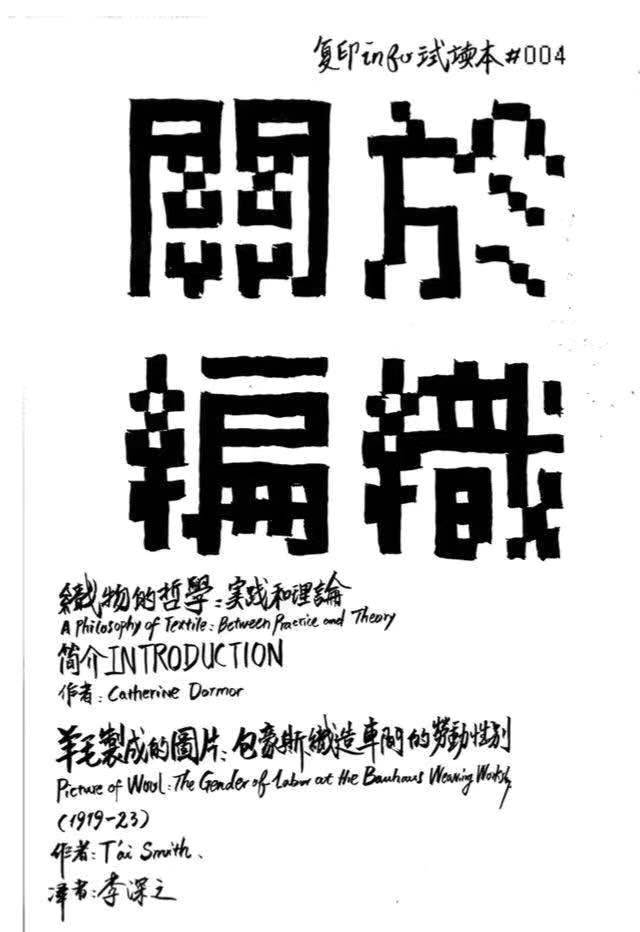 复印info试读本#004
關於
編織
織物的哲學:实践和理論
A Philosophy of Textile: Between Practice and Theory
简介INTRODUCTION
作者: Catherine Dormor
羊毛製成的圖片: 包豪斯織造車間的勞動性別
Picture of Wool: The Gender of Labor at the Bauhaus Weaving Worksh
(1919-23)
作者: T'ai Smith.
译者: 李深之